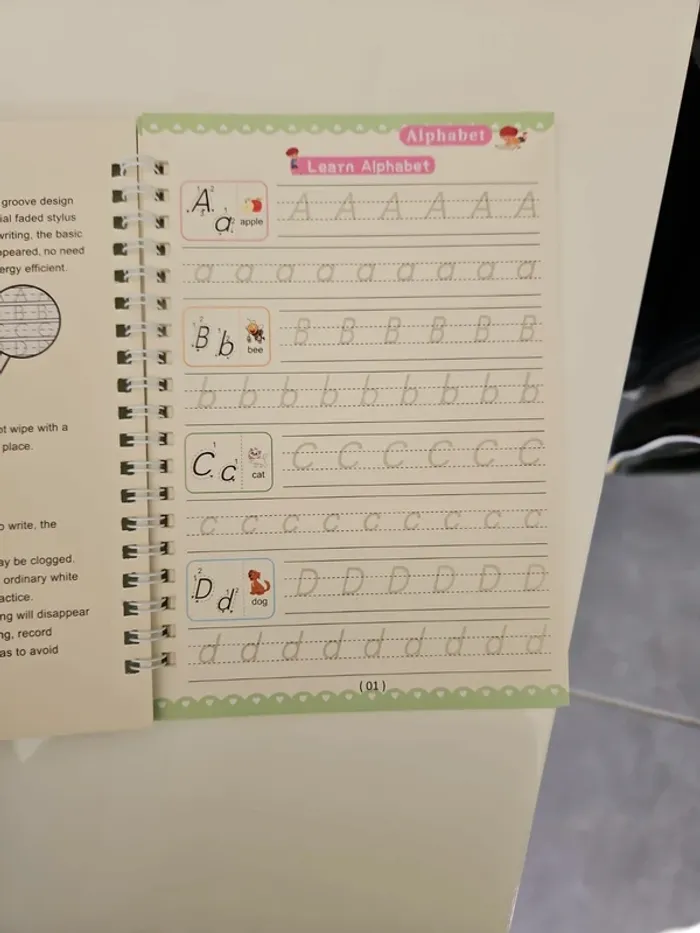 groove design
ial faded stylus
writing, the basic
peared, no need
ergy efficient.
ot wipe with a
place.
o write, the
ay be clogged.
ordinary white
actice.
ng will disappear
ng, record
as to avoid
Alphabet
Learn Alphabet
A a apple
A A A A A A
a a a a a a a a a
B b bee
B B B B B B
b b b b b b b b b
C c cat
C C C C C C
c c c c c c c c c
D d dog
D D D D D D
d d d d d d d d d
( 01 )